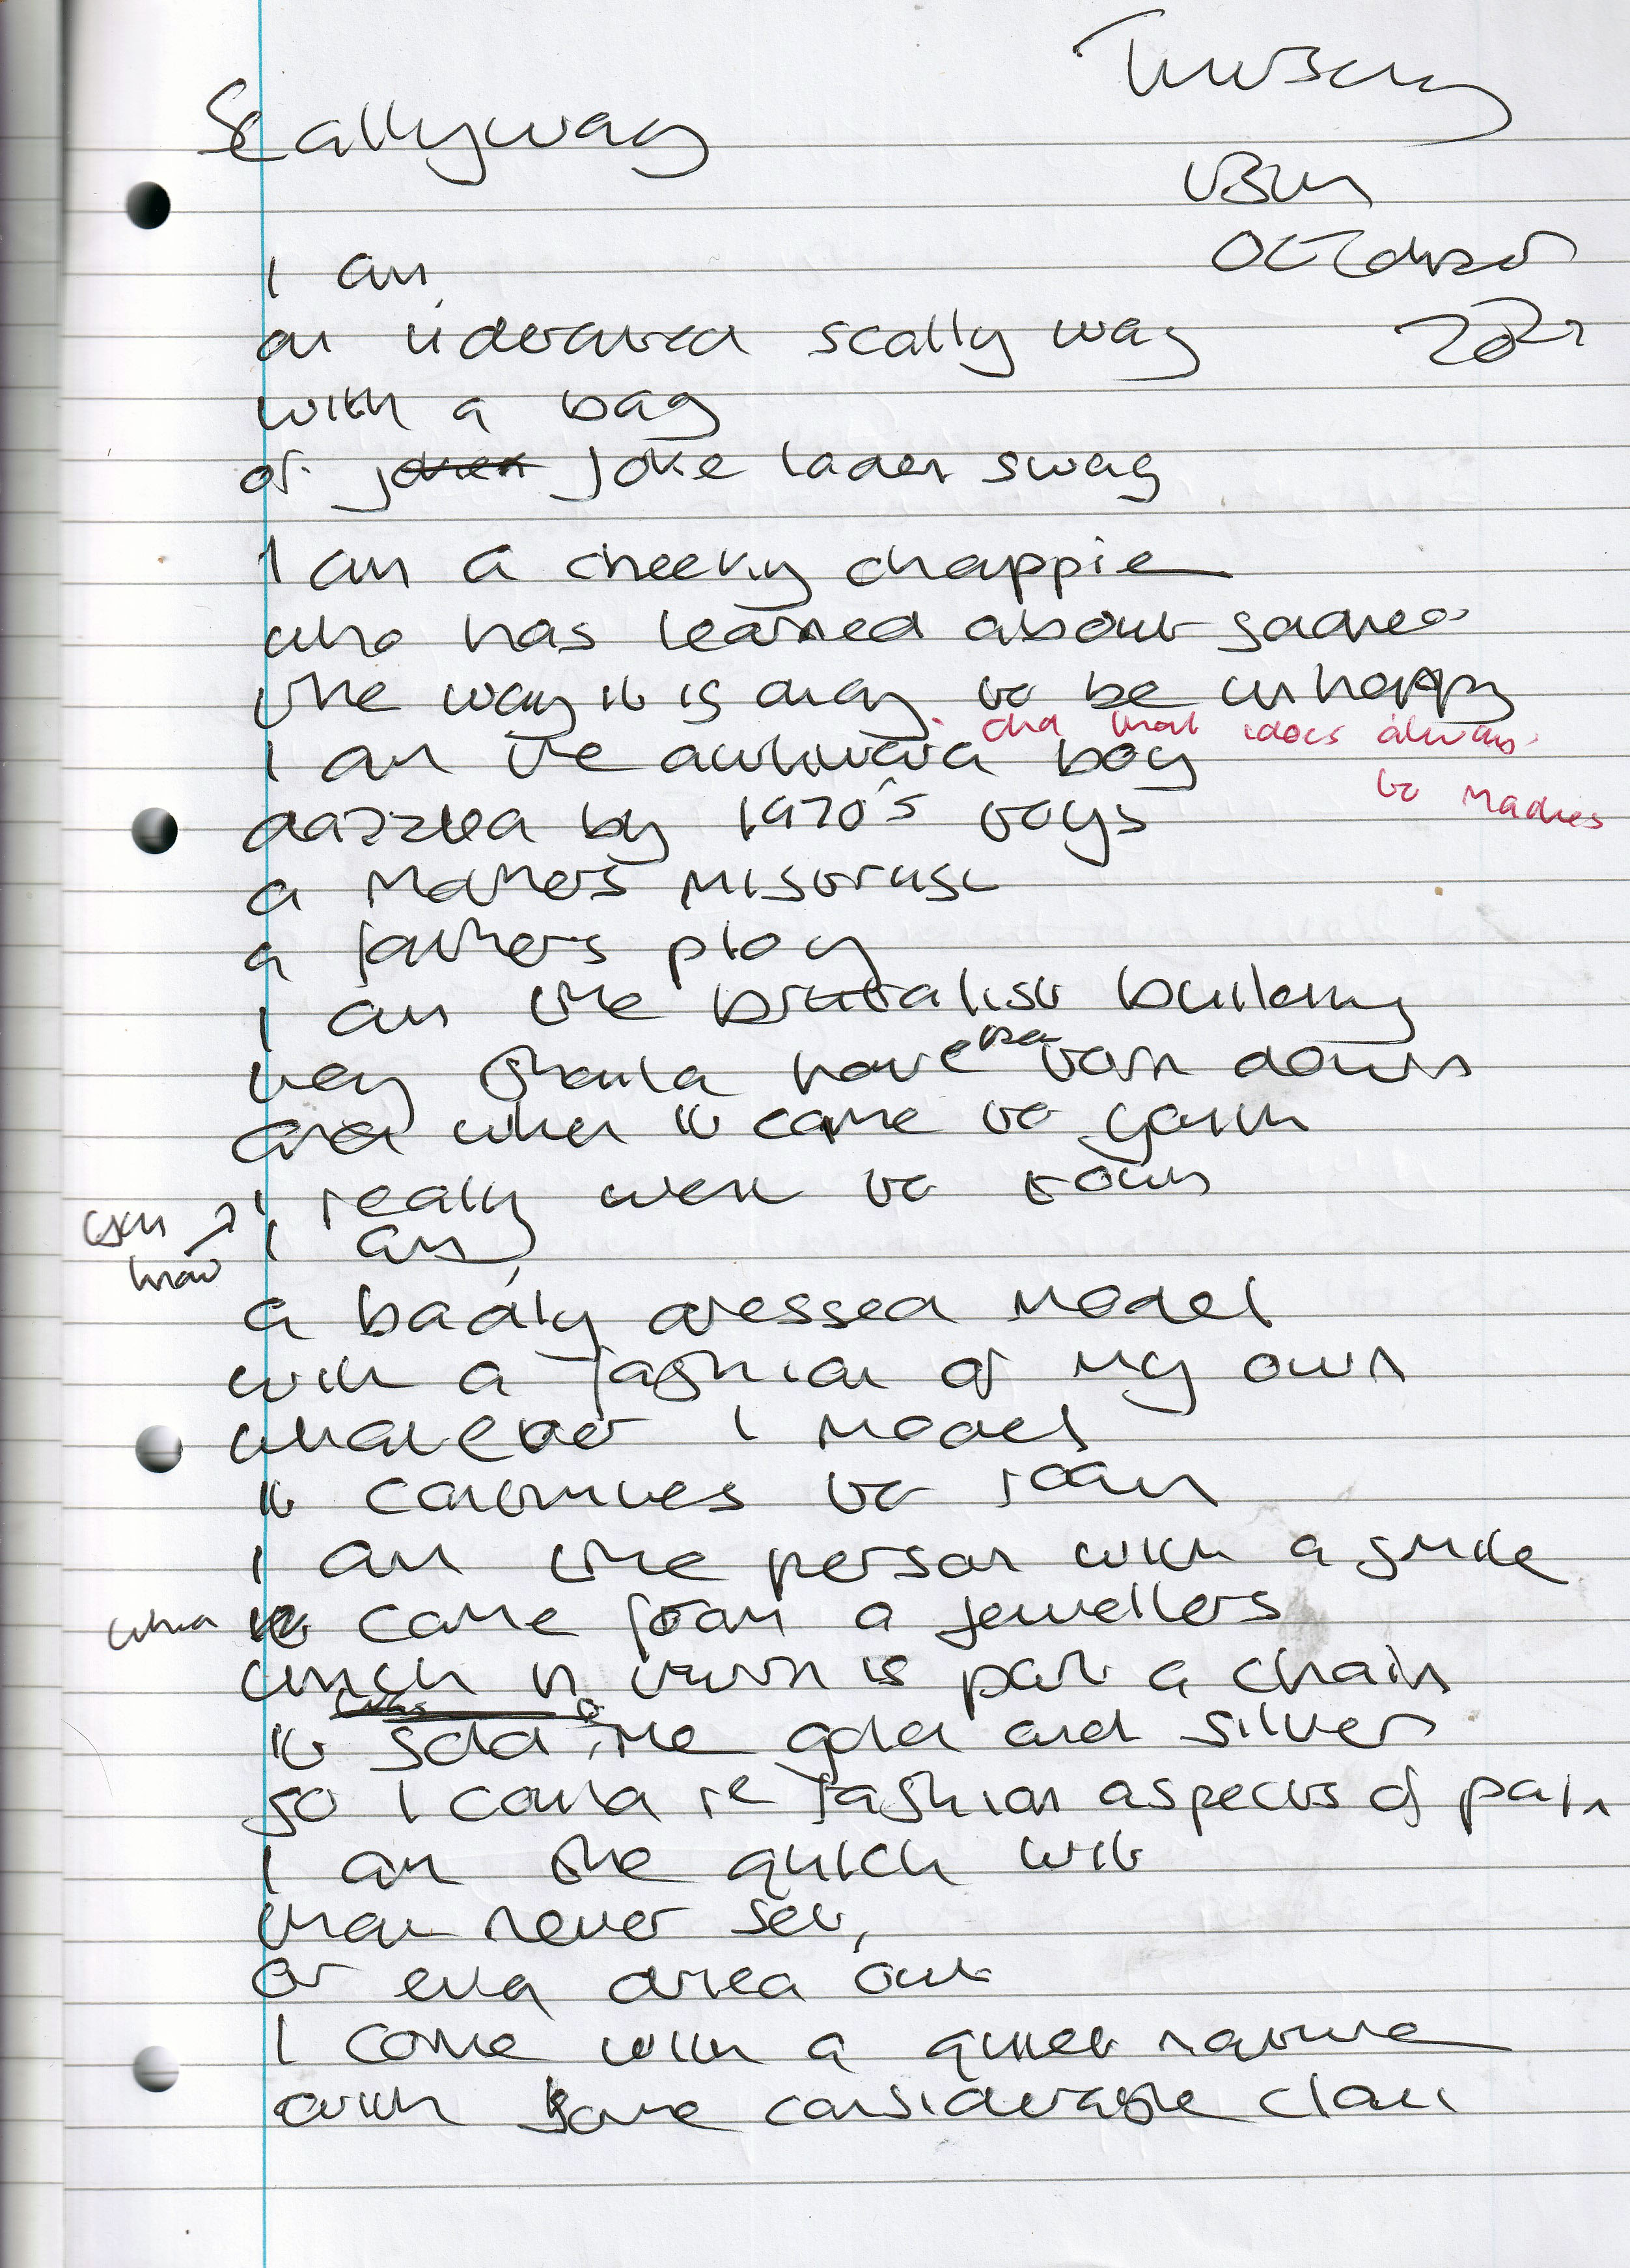 Scallywag
Thursday
13th
October
2022
I am,
an underarea scally wag
with a bag
of joke laden swag
I am a cheeky chappie
who has learned about sadness
the way it is okay to be unhappy
and that does always
to madness
I am the awkward boy
dazzled by 1970's toys
a mothers mistrust
a fathers ploy
I am the brutalist building
they should have torn down
and when it came to youth
I really went to town
you know
I am,
a badly dressed model
with a fashion of my own
whatever I model
it continues to
I am the person with a smile
it came from a jewellers
which in turn is part a chain
it sold me gold and silver
so I could re fashion aspects of pain
I am the quick wit
that never set,
or even dried out
I come with a quiet nature
with some considerable clout